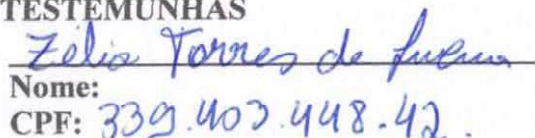 TESTEMUNHAS
Zélia Torres de
Nome:
CPF: 339.403.448-42.